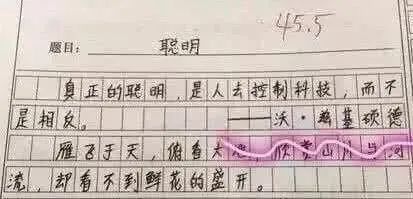 45.5
题目：聪明
真正的聪明，是人去控制科技，而不
是相反。——沃·兹基硕德
雁飞于天，俯看大地，欣赏山川与河
流，却看不到鲜花的盛开。